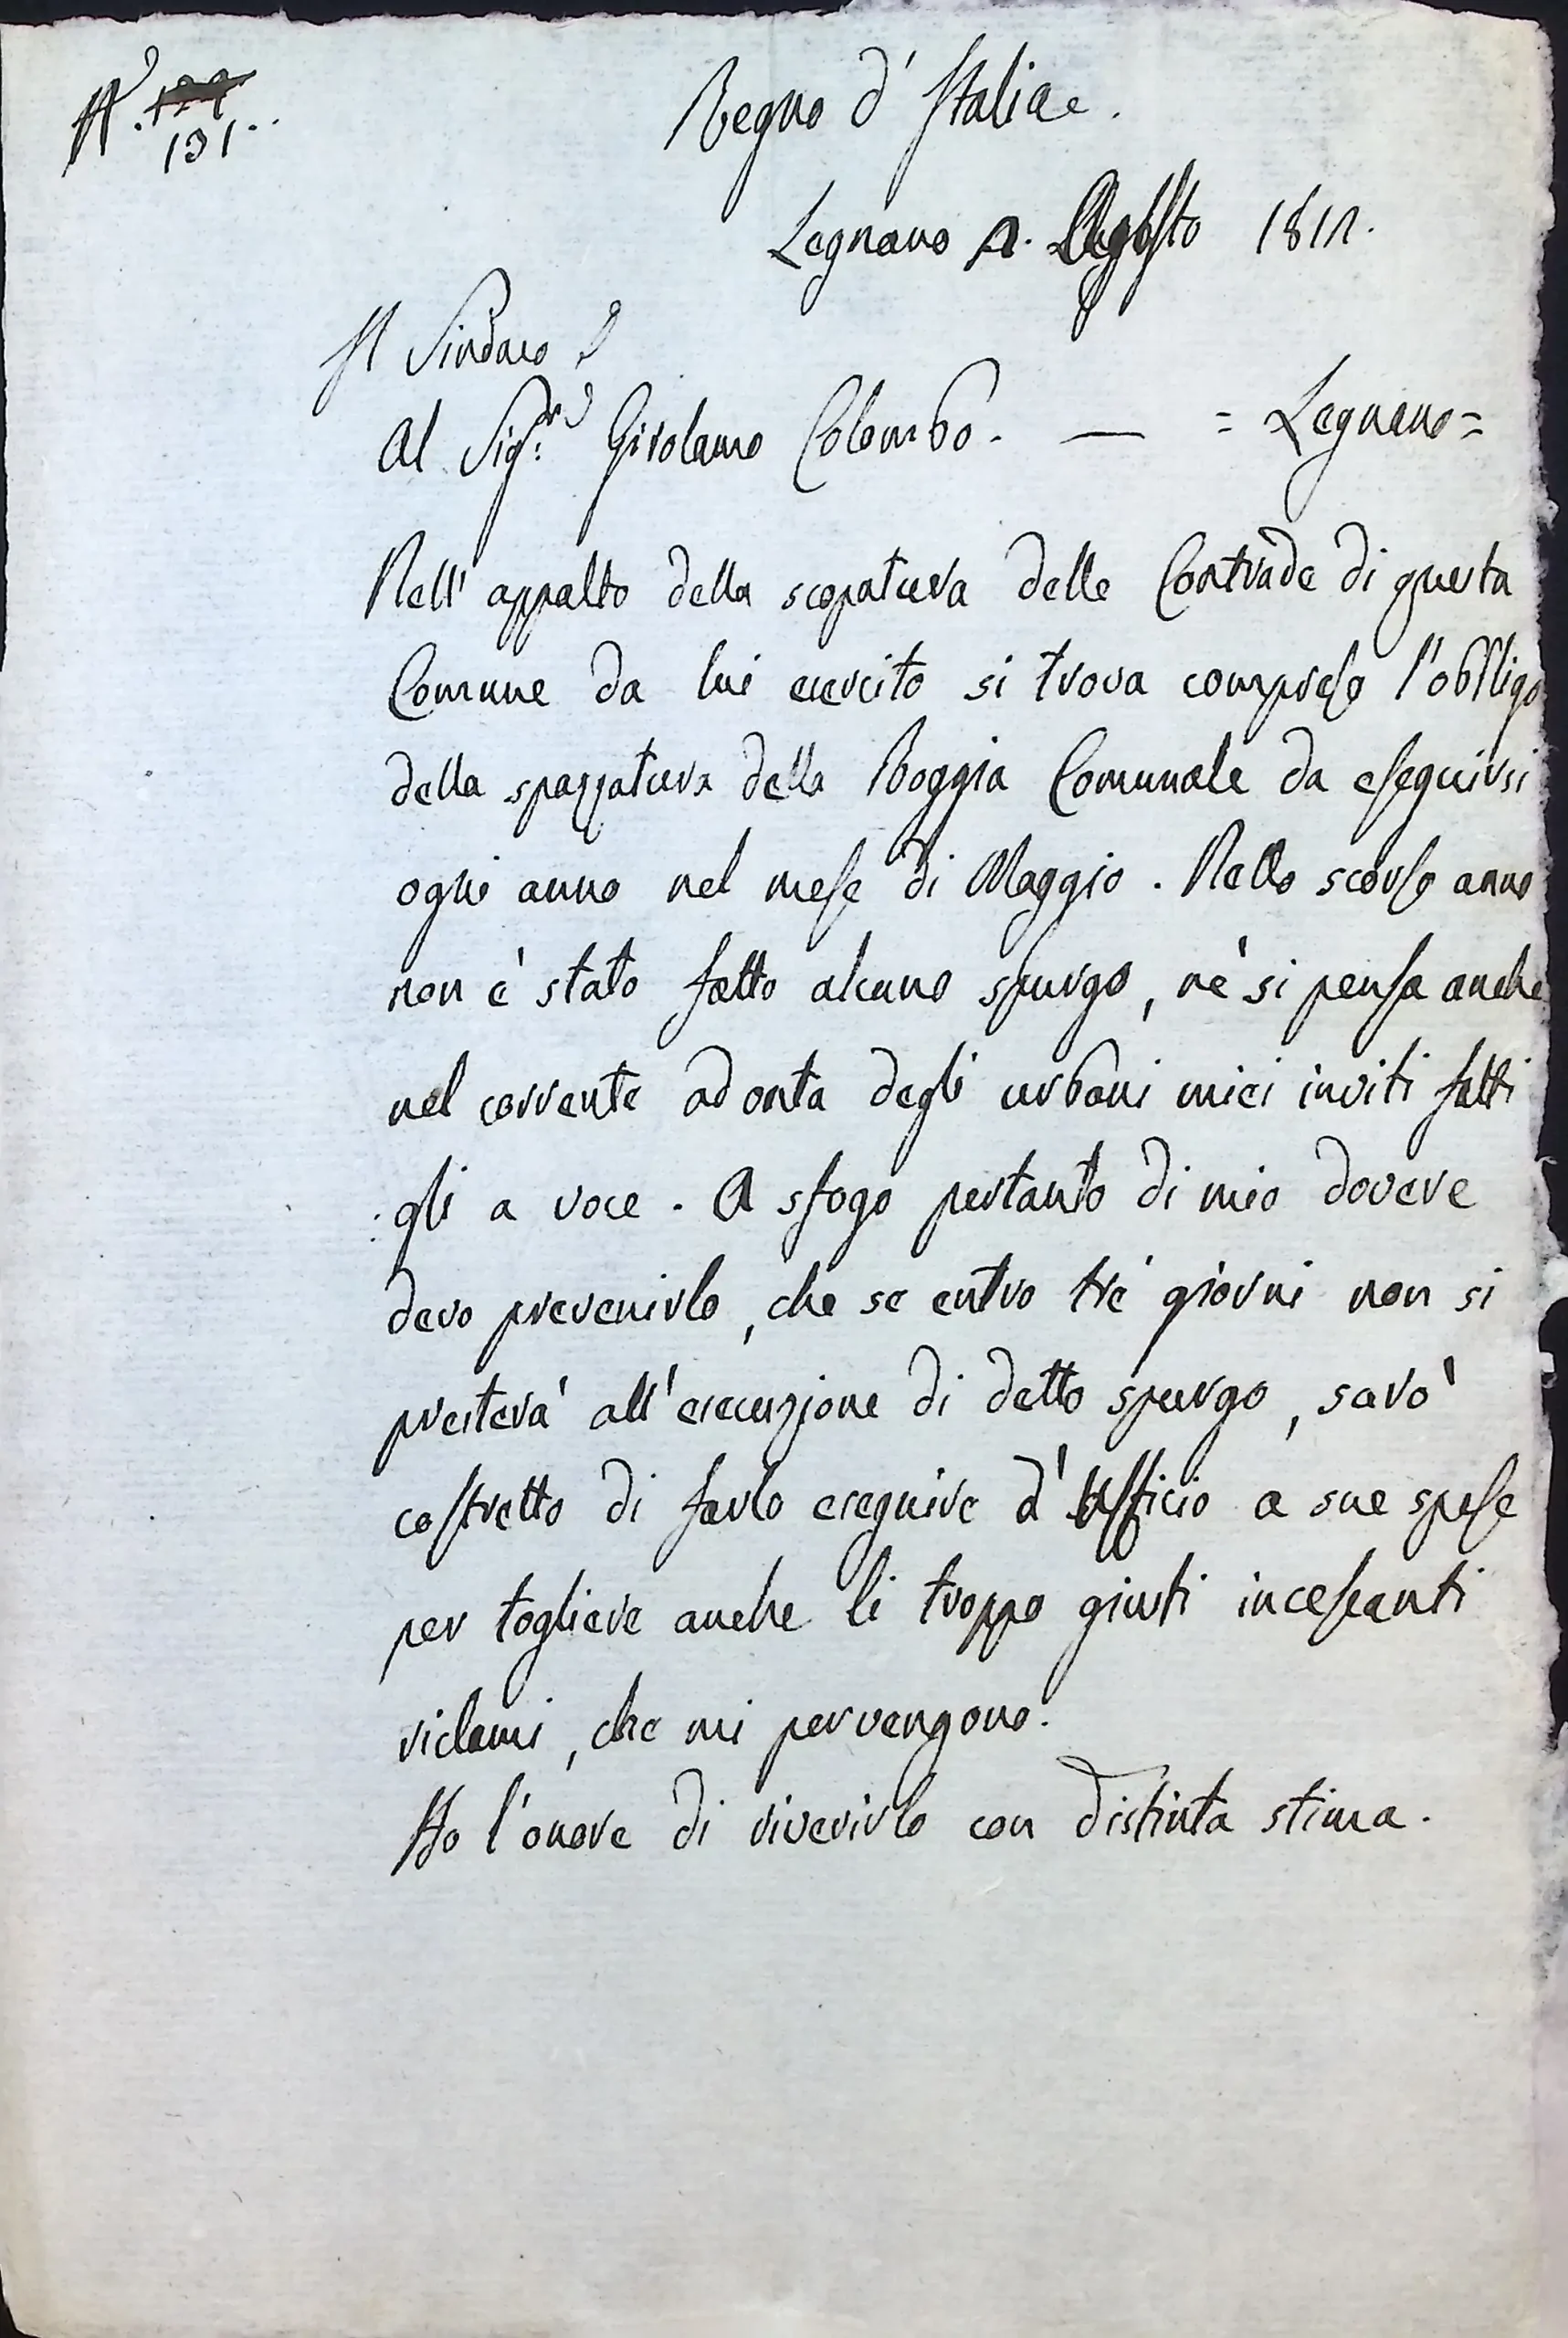 N.
131..
Regno d'Italia.
Legnano A. Agosto 1812.
Il Sindaco
Al Sig.r Girolamo Colombo. — = Legnano =
Nell'appalto della scopatura delle Contrade di questa
Comune da lui esercito si trova compreso l'obbligo
della spazzatura della Roggia Comunale da eseguirsi
ogni anno nel mese di Maggio. Nello scorso anno
non è stato fatto alcuno spurgo, nè si pensa anche
nel corrente ad onta degli urbani miei inviti fatti
:gli a voce. A sfogo pertanto di mio dovere
devo prevenirlo, che se entro tré giorni non si
presterà all'esecuzione di detto spurgo, sarò
costretto di farlo eseguire d'Ufficio a sue spese
per togliere anche li troppo giusti incessanti
riclami, che mi pervengono.
Ho l'onore di riverirlo con distinta stima.